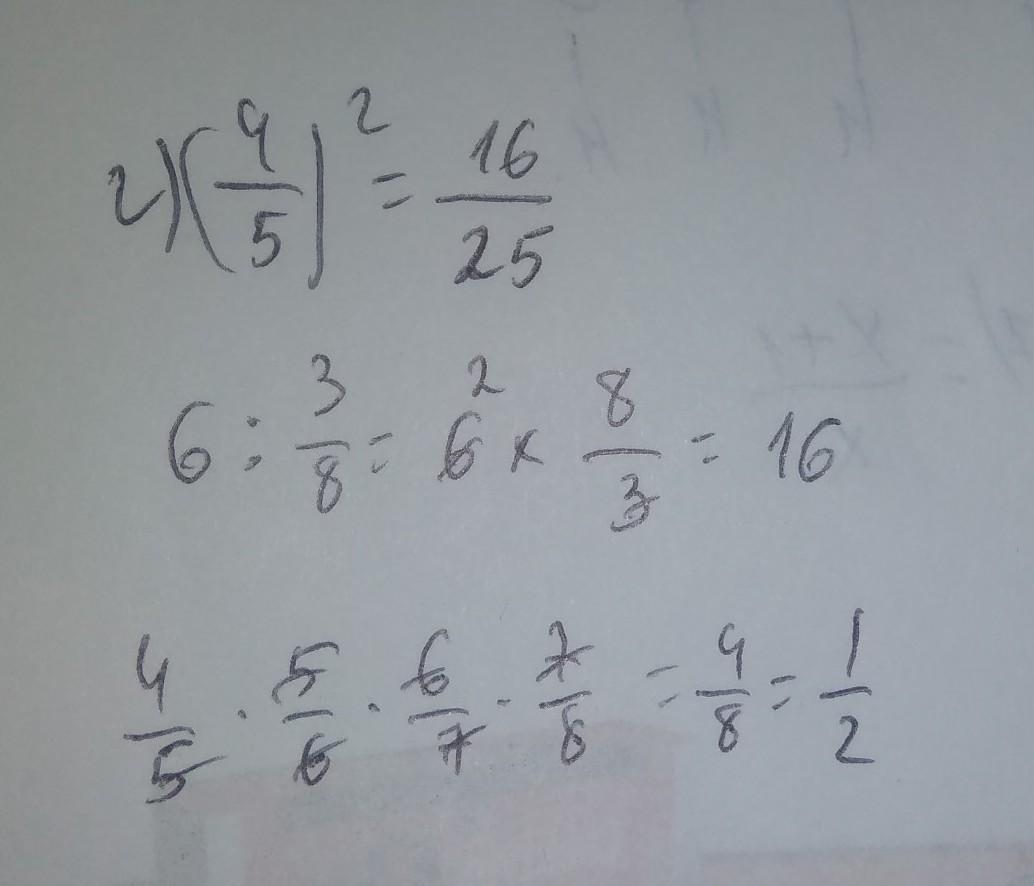 2) (4/5)² = 16/25
6 : 3/8 = 6 2 × 8/3 = 16
4/5 · 5/6 · 6/7 · 7/8 = 4/8 = 1/2